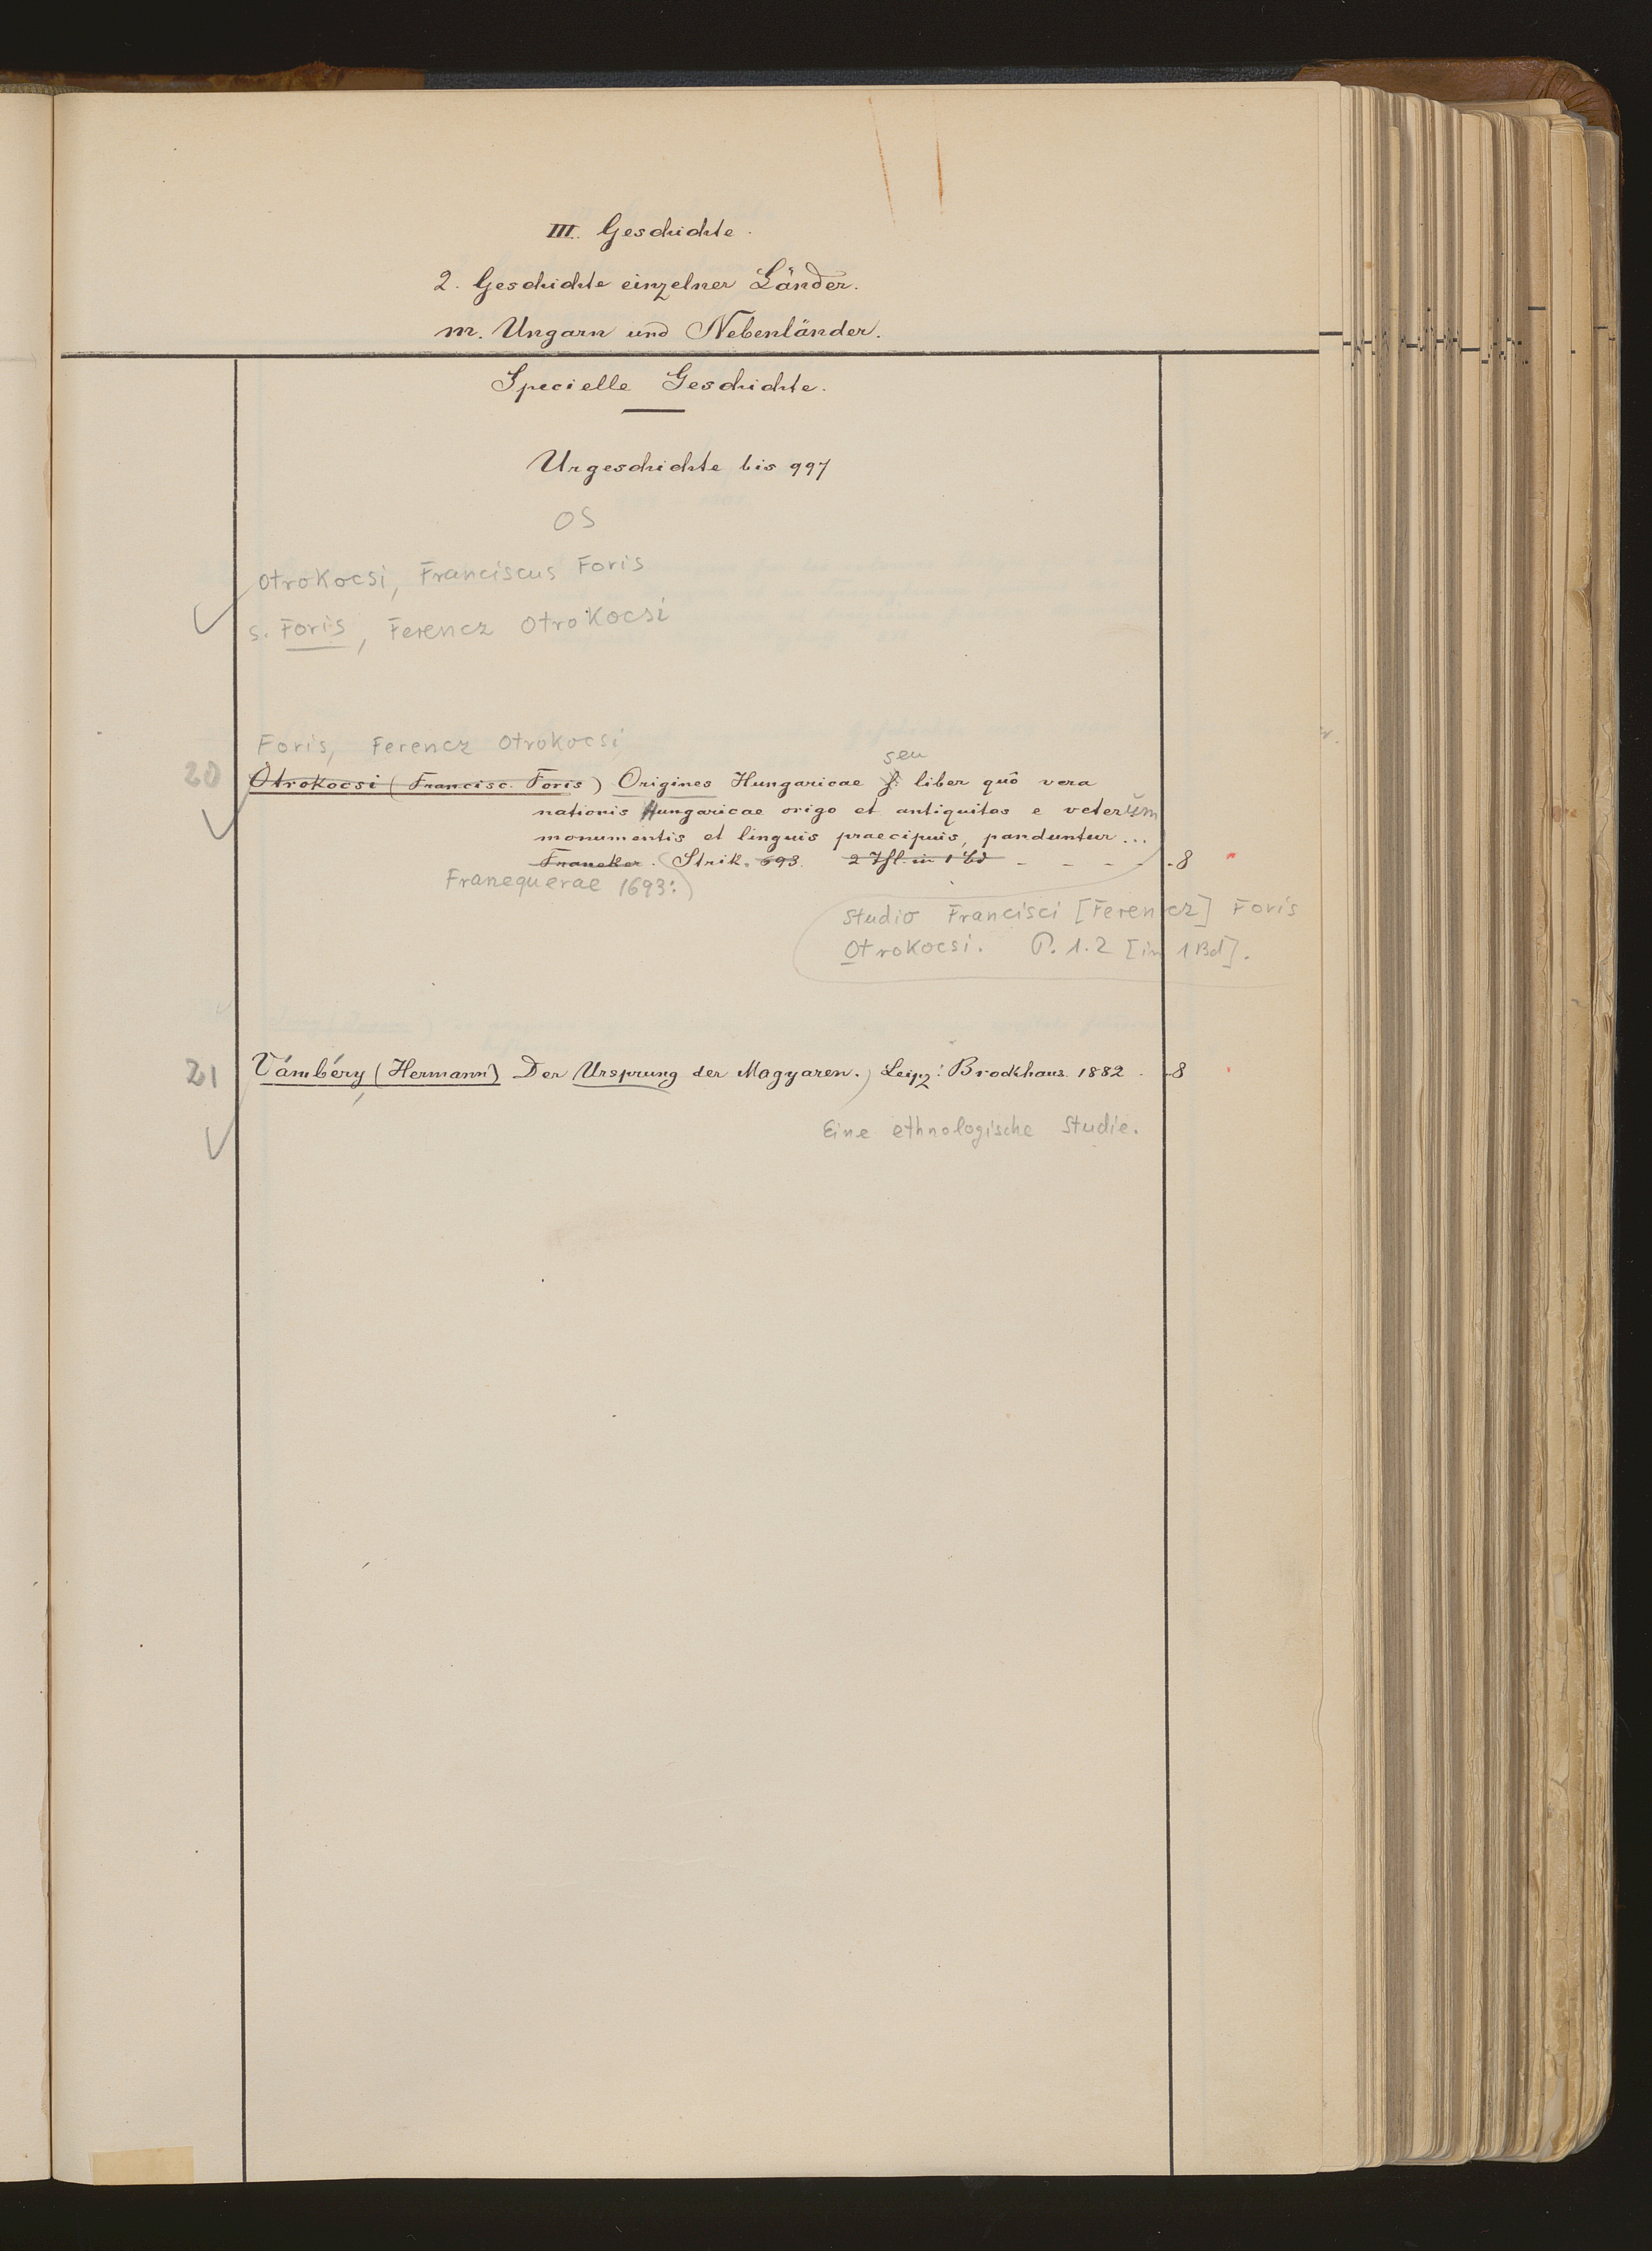 III. Geschichte.
2. Geschichte einzelner Länder.
m. Ungarn und Nebenländer.
Specielle Geschichte.
Urgeschichte bis 997
OS
Otrokocsi, Franciscus Foris
s. Foris, Ferencz Otrokocsi
Foris, Ferencz Otrokocsi
seu
20 Otrokocsi (Francisc. Foris) Origines Hungaricae s: liber quô vera
nationis Hungaricae origo et antiquitas e veterum
monumentis et linguis praecipuis, panduntur...
Franeker. Strik. 693. 2 Thl. in 1 Bd - - - - - 8
Franequerae 1693:)
Studio Francisci [Ferencz] Foris
Otrokocsi. P. 1.2 [in 1 Bd].
21 Vámbéry (Hermann) Der Ursprung der Magyaren.) Leipz: Brockhaus. 1882. - 8
Eine ethnologische Studie.